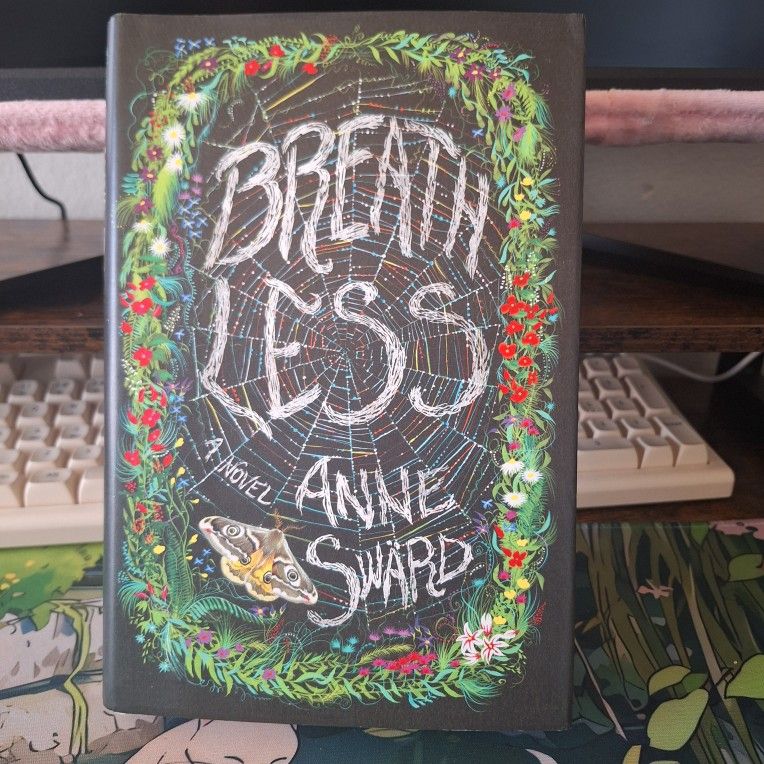 BREATH
LESS
A NOVEL
ANNE
SWÄRD